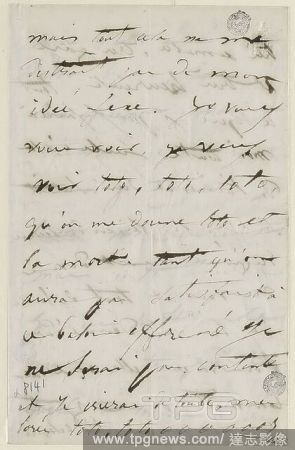 mais tout cela ne me
distrait pas de mon
idée fixe. Je veux
vous voir je veux
voir toto, toto, toto,
qu'on me donne toto et
la mort. tant qu'on
aura pas satisfait à
ce besoin effréné je
ne serai pas contente
et je crierai à toute
toto, toto
8141
TPG
www.tpgnews.com/達志影像